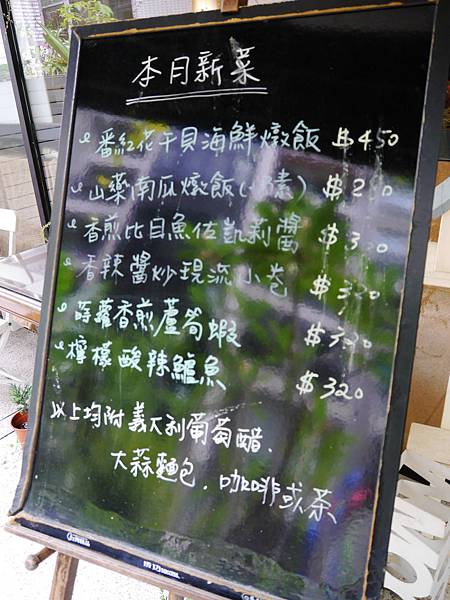 本月新菜
番紅花干貝海鮮燉飯 $450
山藥南瓜燉飯(素) $280
香煎比目魚佐凱莉醬 $320
香辣醬炒現流小卷 $320
蒔蘿香煎蘆筍蝦 $320
檸檬酸辣鱸魚 $320
以上均附義大利葡萄醋、
大蒜麵包，咖啡或茶